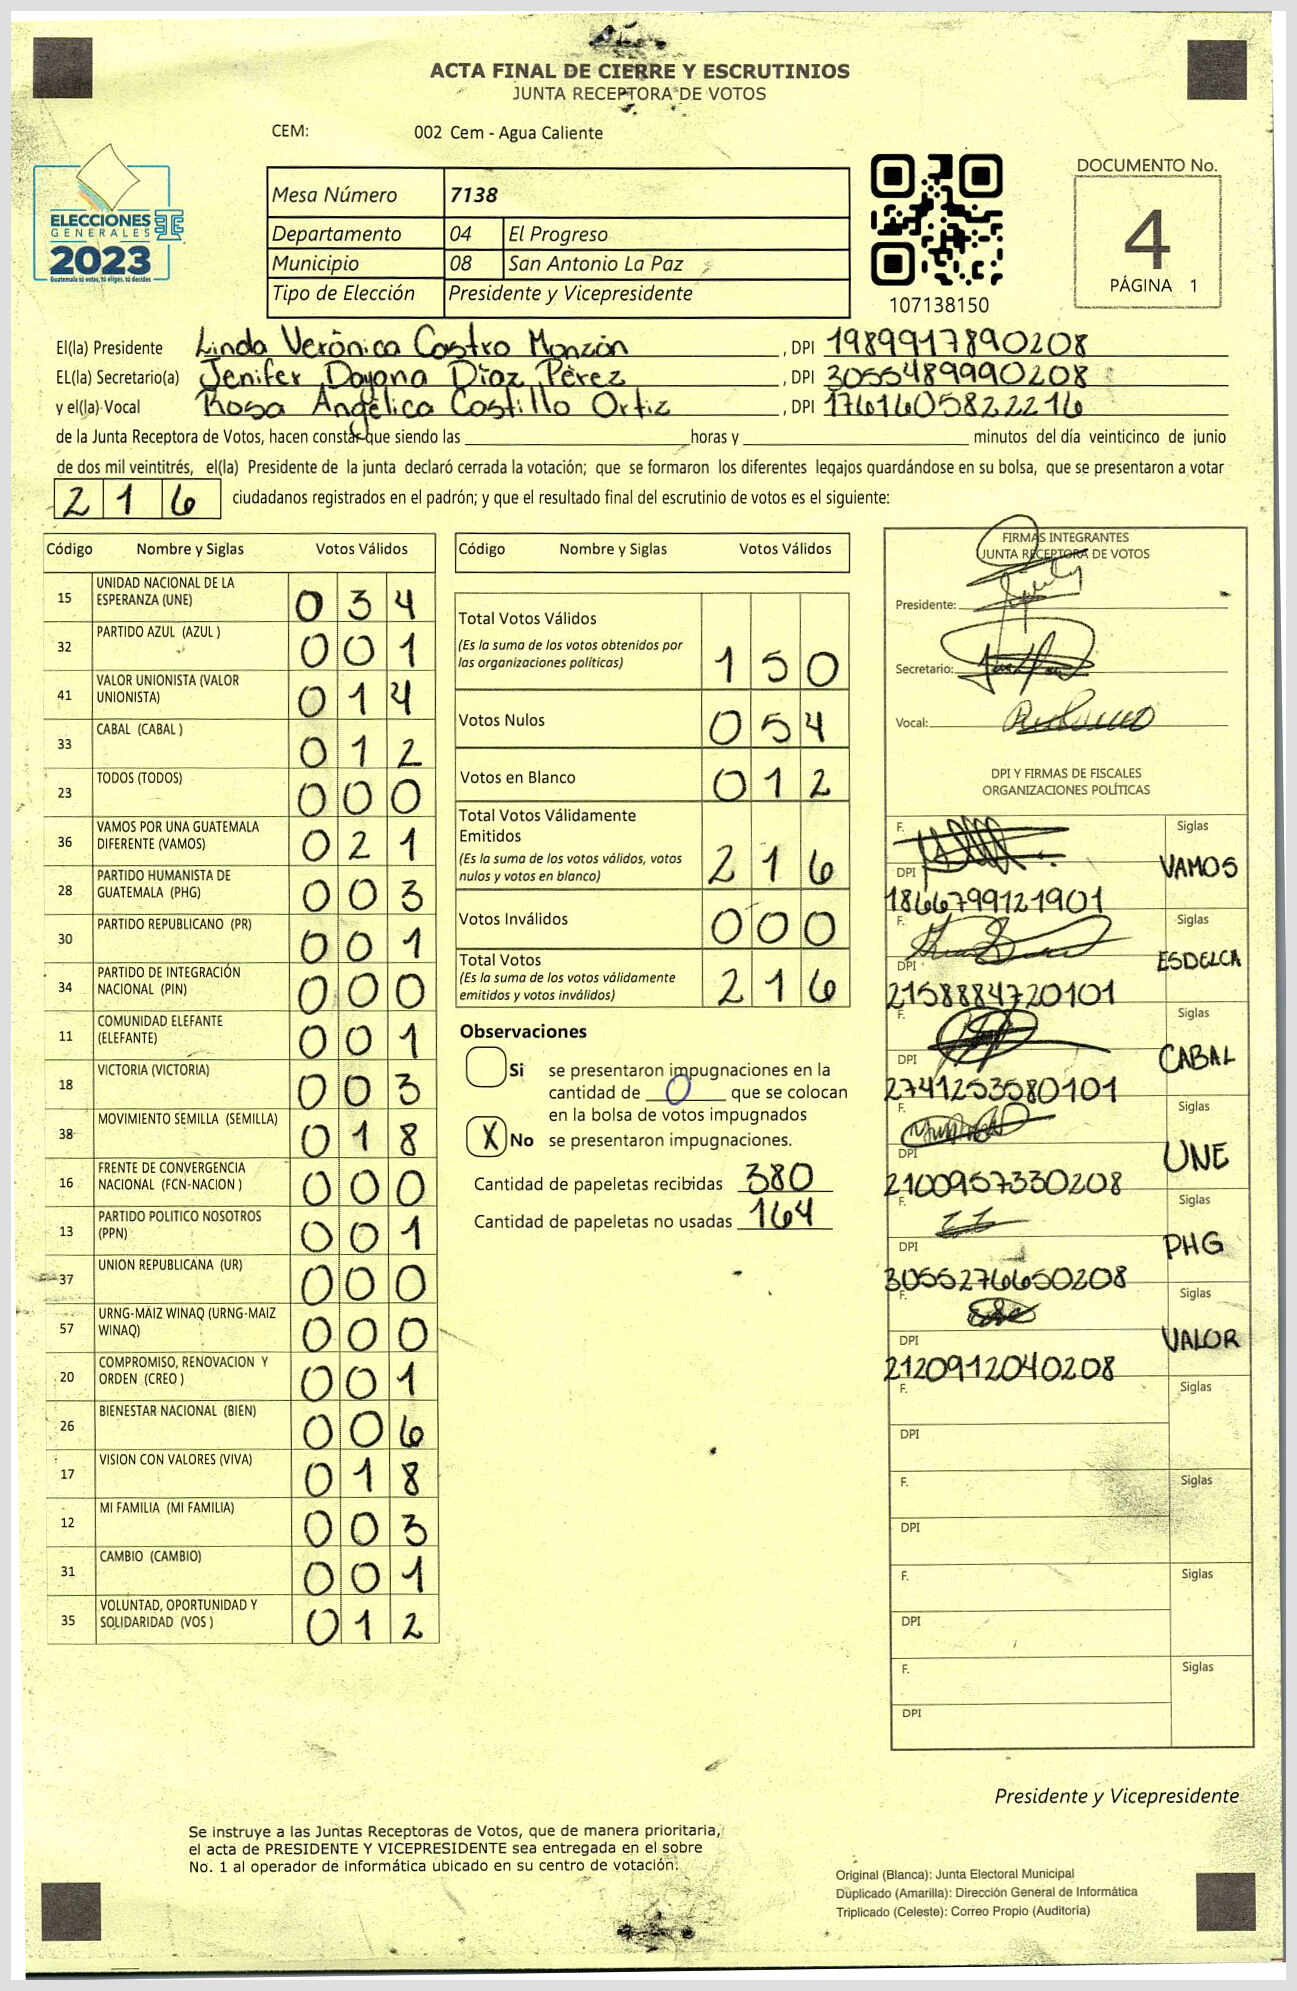 ACTA FINAL DE CIERRE Y ESCRUTINIOS
JUNTA RECEPTORA DE VOTOS
CEM: 002 Cem - Agua Caliente
ELECCIONES
GENERALES
2023
Guatemala tú votas, tú eliges, tú decides
Mesa Número 7138
Departamento 04 El Progreso
Municipio 08 San Antonio La Paz
Tipo de Elección Presidente y Vicepresidente
107138150
DOCUMENTO No.
4
PÁGINA 1
El(la) Presidente Linda Verónica Castro Monzón, DPI 1989917890208
EL(la) Secretario(a) Jenifer Dayana Díaz Pérez, DPI 3055489990208
y el(la) Vocal Rosa Angélica Castillo Ortiz, DPI 1761605822216
de la Junta Receptora de Votos, hacen constar que siendo las horas y minutos del día veinticinco de junio
de dos mil veintitrés, el(la) Presidente de la junta declaró cerrada la votación; que se formaron los diferentes legajos guardándose en su bolsa, que se presentaron a votar
216 ciudadanos registrados en el padrón; y que el resultado final del escrutinio de votos es el siguiente:
Código Nombre y Siglas Votos Válidos
15 UNIDAD NACIONAL DE LA ESPERANZA (UNE) 034
32 PARTIDO AZUL (AZUL ) 001
41 VALOR UNIONISTA (VALOR UNIONISTA) 014
33 CABAL (CABAL ) 012
23 TODOS (TODOS) 000
36 VAMOS POR UNA GUATEMALA DIFERENTE (VAMOS) 021
28 PARTIDO HUMANISTA DE GUATEMALA (PHG) 003
30 PARTIDO REPUBLICANO (PR) 001
34 PARTIDO DE INTEGRACIÓN NACIONAL (PIN) 000
11 COMUNIDAD ELEFANTE (ELEFANTE) 001
18 VICTORIA (VICTORIA) 003
38 MOVIMIENTO SEMILLA (SEMILLA) 018
16 FRENTE DE CONVERGENCIA NACIONAL (FCN-NACION ) 000
13 PARTIDO POLITICO NOSOTROS (PPN) 001
37 UNION REPUBLICANA (UR) 000
57 URNG-MAIZ WINAQ (URNG-MAIZ WINAQ) 000
20 COMPROMISO, RENOVACION Y ORDEN (CREO ) 001
26 BIENESTAR NACIONAL (BIEN) 006
17 VISION CON VALORES (VIVA) 018
12 MI FAMILIA (MI FAMILIA) 003
31 CAMBIO (CAMBIO) 001
35 VOLUNTAD, OPORTUNIDAD Y SOLIDARIDAD (VOS ) 012
Código Nombre y Siglas Votos Válidos
Total Votos Válidos
(Es la suma de los votos obtenidos por las organizaciones políticas) 150
Votos Nulos 054
Votos en Blanco 012
Total Votos Válidamente Emitidos
(Es la suma de los votos válidos, votos nulos y votos en blanco) 216
Votos Inválidos 000
Total Votos
(Es la suma de los votos válidamente emitidos y votos inválidos) 216
Observaciones
Si se presentaron impugnaciones en la
cantidad de 0 que se colocan
en la bolsa de votos impugnados
X No se presentaron impugnaciones.
Cantidad de papeletas recibidas 380
Cantidad de papeletas no usadas 164
FIRMAS INTEGRANTES
JUNTA RECEPTORA DE VOTOS
Presidente:
Secretario:
Vocal:
DPI Y FIRMAS DE FISCALES
ORGANIZACIONES POLÍTICAS
F. Siglas
DPI 1866799121901 VAMOS
F. Siglas
DPI 2158884720101 ESDELCA
F. Siglas
DPI 2741253580101 CABAL
F. Siglas
DPI 2100957330208 UNE
F. Siglas
DPI 3055276650208 PHG
F. Siglas
DPI 2120912040208 VALOR
F. Siglas
DPI
F. Siglas
DPI
F. Siglas
DPI
F. Siglas
DPI
Presidente y Vicepresidente
Se instruye a las Juntas Receptoras de Votos, que de manera prioritaria,
el acta de PRESIDENTE Y VICEPRESIDENTE sea entregada en el sobre
No. 1 al operador de informática ubicado en su centro de votación.
Original (Blanca): Junta Electoral Municipal
Duplicado (Amarilla): Dirección General de Informática
Triplicado (Celeste): Correo Propio (Auditoría)